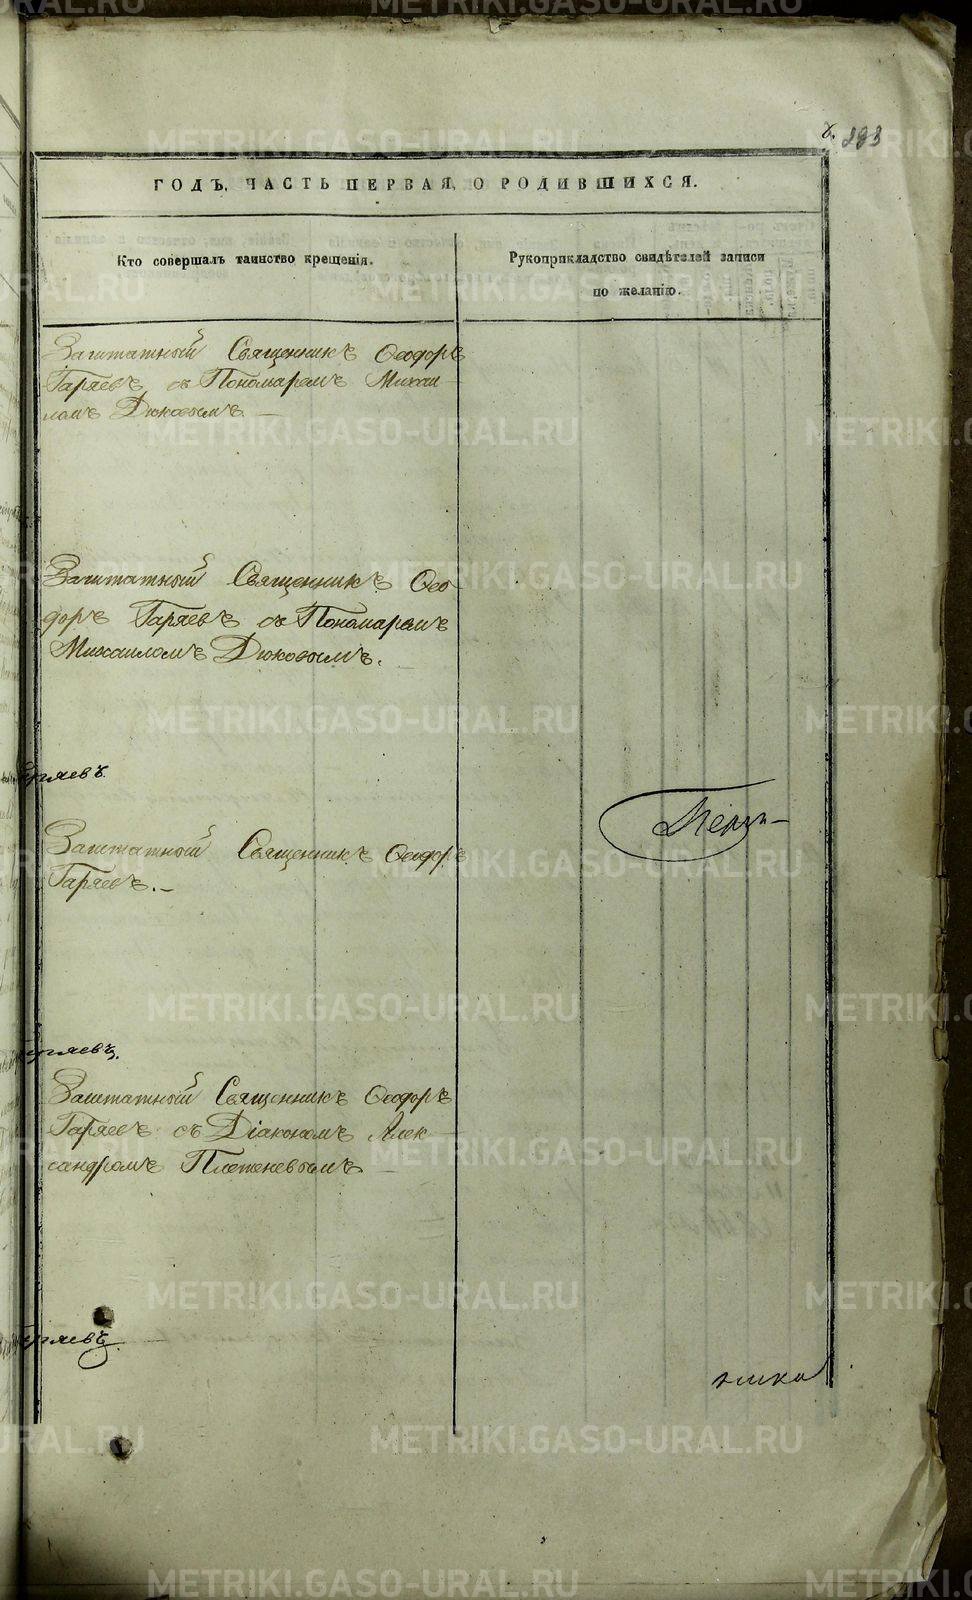 283
ГОДЪ, ЧАСТЬ ПЕРВАЯ, О РОДИВШИХСЯ.
Кто совершалъ таинство крещенія.
Рукоприкладство свидѣтелей записи
по желанію.
Заштатный Священникъ Ѳеодоръ
Гаряевъ съ Пономаремъ Михаи
ломъ Дюковымъ. —
Заштатный Священникъ Ѳео-
доръ Гаряевъ съ Пономаремъ
Михаиломъ Дюковымъ. —
Гаряевъ.
Заштатный Священникъ Ѳеодоръ
Гаряевъ. —
Гаряевъ.
Заштатный Священникъ Ѳеодоръ
Гаряевъ съ Діакономъ Алек
сандромъ Плетеневымъ —
Гаряевъ.
METRIKI.GASO-URAL.RU